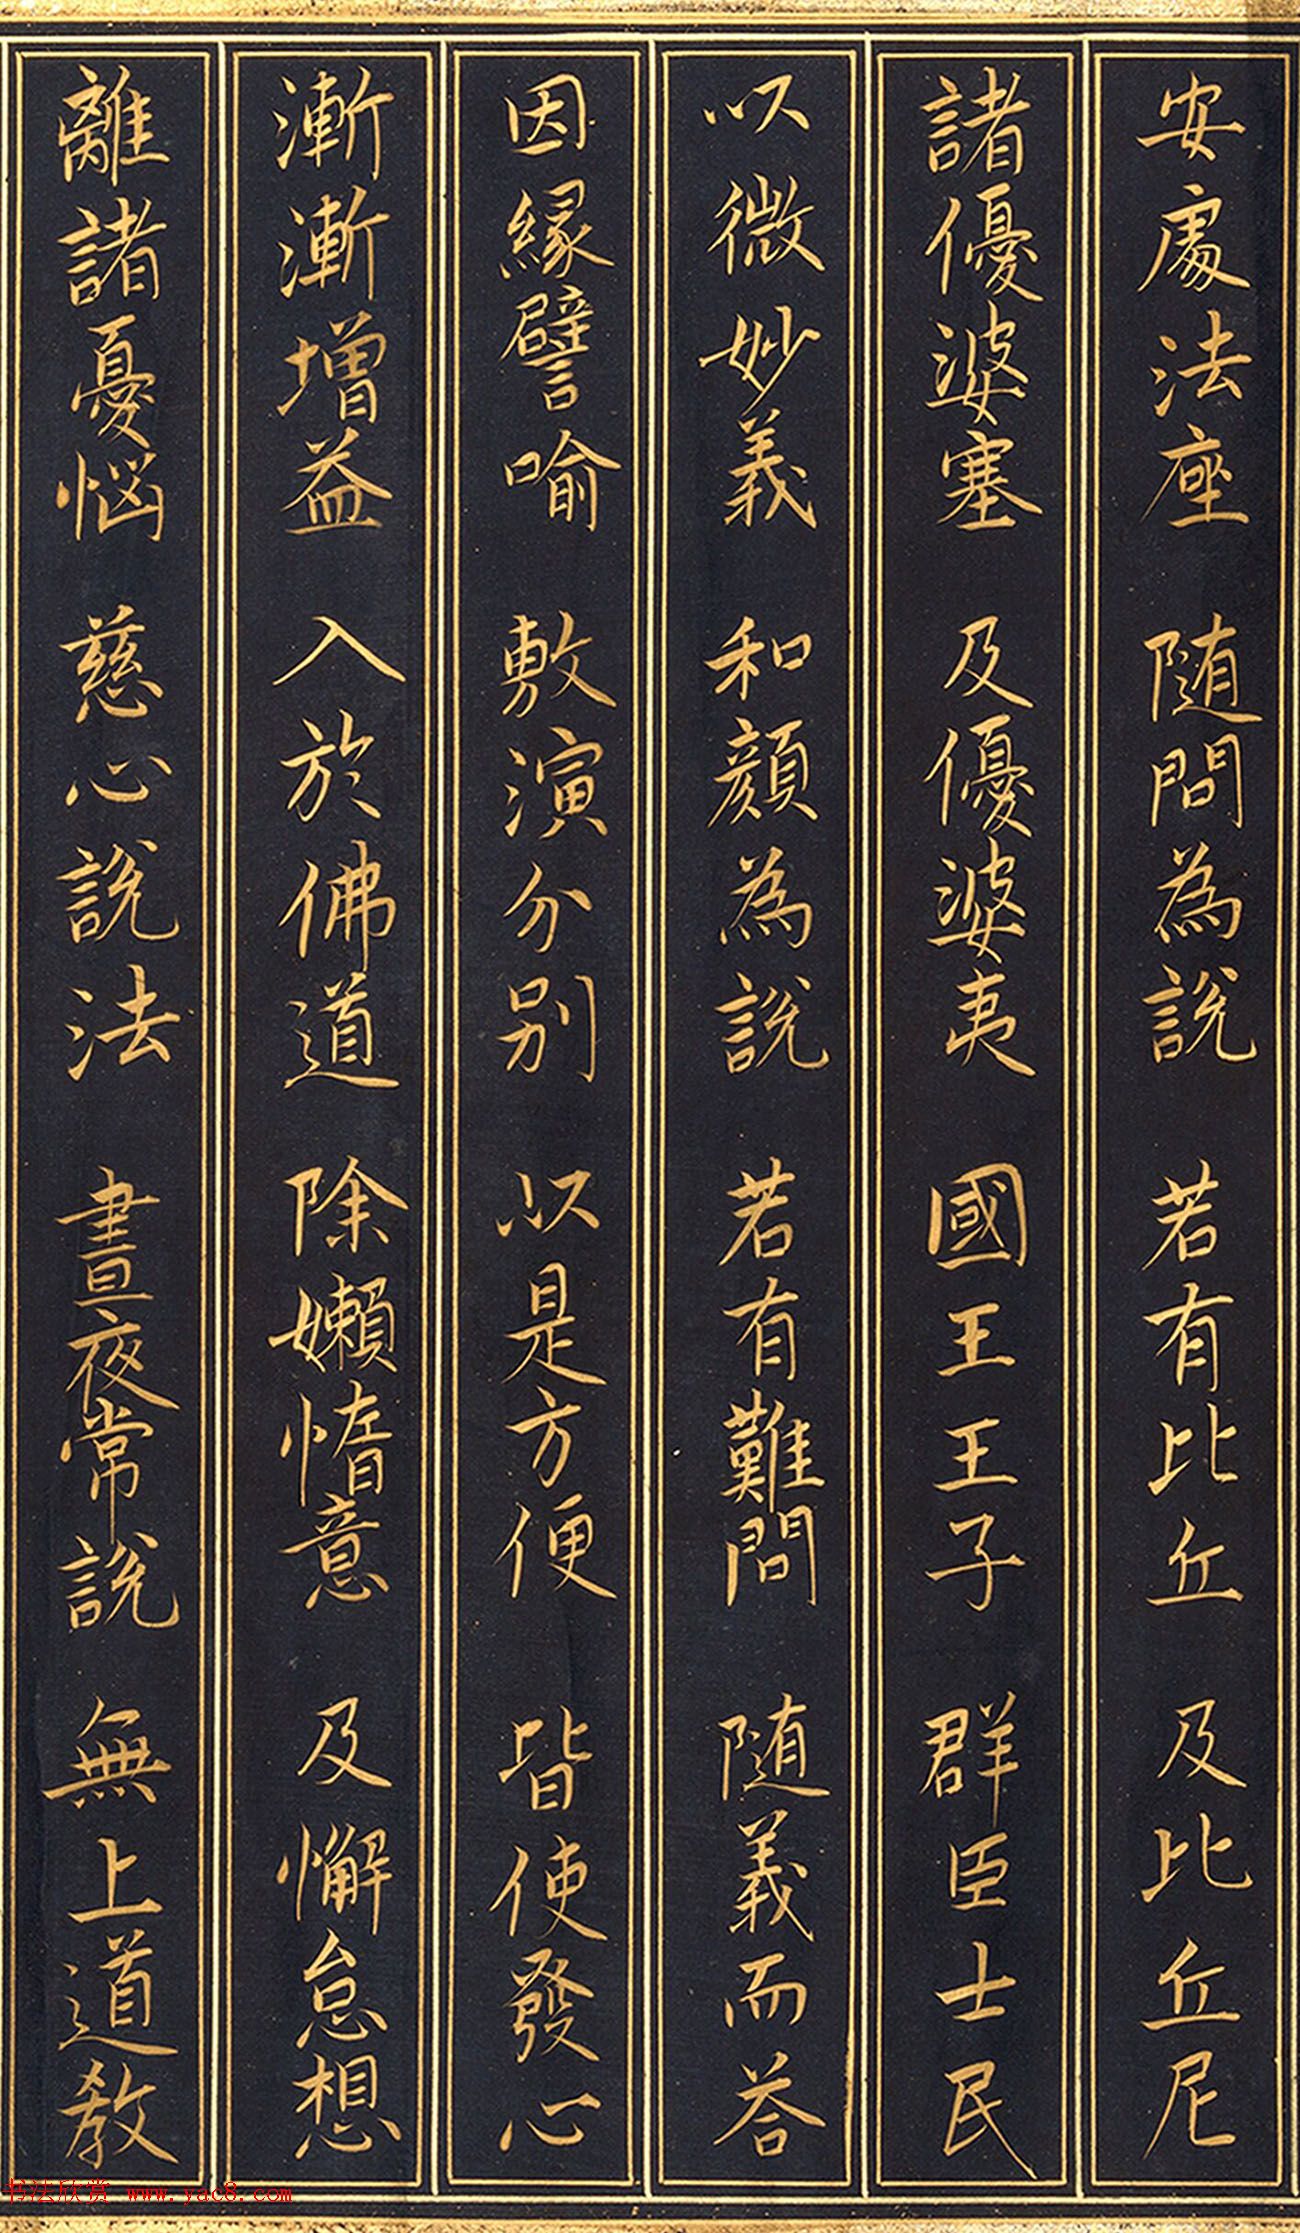 安處法座 随問為說 若有比丘 及比丘尼
諸優婆塞 及優婆夷 國王王子 群臣士民
以微妙義 和顔為說 若有難問 随義而荅
因緣譬喻 敷演分别 以是方便 皆使發心
漸漸增益 入於佛道 除嬾惰意 及懈怠想
離諸憂惱 慈心說法 晝夜常說 無上道教
书法欣赏 www.yac8.com